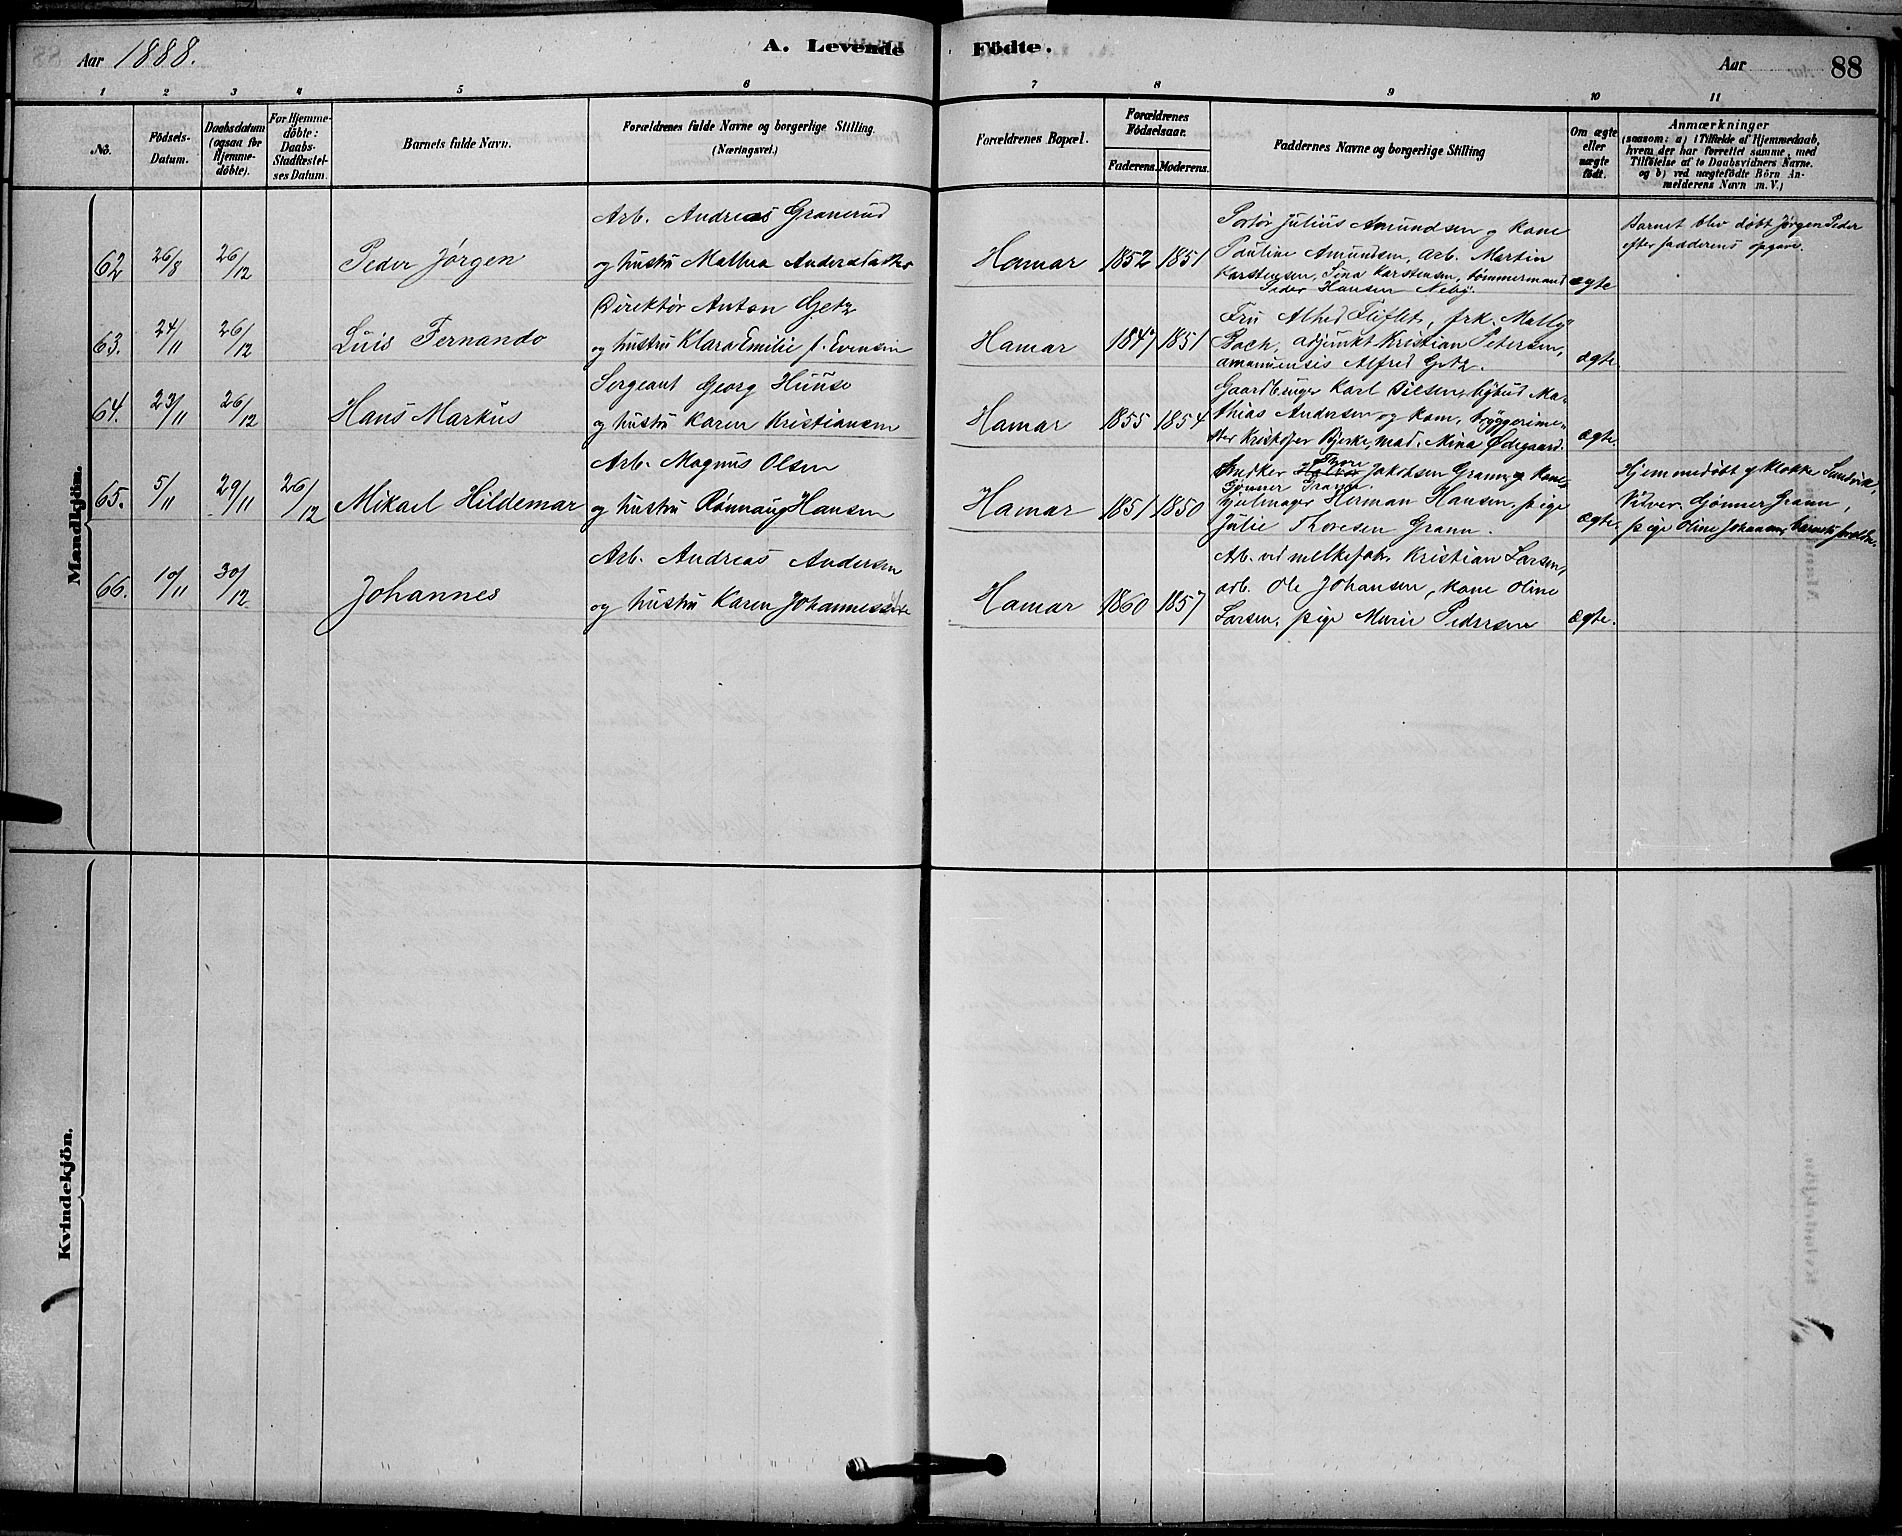 Aar 1888. A. Levende Födte. Aar 88
1 2 3 4 5 6 7 8 9 10 11
No.
Födsels-Datum.
Daabsdatum (ogsaa for Hjemme-döbte).
For Hjemme-döbte: Daabs-Stadfæstel-ses Datum.
Barnets fulde Navn.
Forældrenes fulde Navne og borgerlige Stilling (Næringsvei.)
Forældrenes Bopæl.
Forældrenes Födselsaar.
Faderens. Moderens.
Faddernes Navne og borgerlige Stilling
Om ægte eller uægte födt.
Anmærkninger
(saasom: a) i Tilfælde af Hjemmedaab,
hvem der har forrettet samme, med
Tilföielse af to Daabsvidners Navne.
og b) ved uægtefödte Börn An-
melderens Navn m. V.)
Mandkjön.
62 26/8 26/12 Peder Jørgen
Arb. Andreas Granerud
og hustru Mathea Andersdatter
Hamar 1852 1851
Portør Julius Amundsen og kone
Pauline Amundsen, arb. Martin
Karstensen, Tina Karstensen, tømmermand
Peder Hansen Neby.
ægte
Barnet blev døbt Jørgen Peder
efter fadderens opgave.
63. 24/11 26/12 Luis Fernando
Direktør Anton Getz
og hustru Klara Emilie f. Evensen
Hamar 1847 1851
Fru Alhed Fliflet, frk. Mally
Bach, adjunkt Kristian Petersen,
amanuensis Alfred Getz.
ægte.
64. 23/11 26/12 Hans Markus
Sergeant Georg Huuse
og hustru Karen Kristiansen
Hamar 1855 1854
Karl Olsen, bybud Ma-
thias Andersen og kone, bryggerime-
ster Kristofer Bjerke, mad. Mina Ødegaard.
ægte.
65. 5/11 29/11 26/12 Mikael Hildemar
Arb. Magnus Olsen
og hustru Rønnaug Hansen
Hamar 1851 1850
Snedker Thore Jakobsen Grann og kone
Gjønner Grann,
hjulmager Herman Hansen, pige
Julie Thoresen Grann.
ægte.
Hjemmedøbt af klokker Sundvik,
Vidner: Gjønner Grann,
pige Oline Johansen, barnets forældre.
66. 10/11 30/12 Johannes
Arb. Andreas Andersen
og hustru Karen Johannesdtr
Hamar 1860 1857
Arb. ved melkefabr. Kristian Larsen,
arb. Ole Johansen, kone Oline
Larsen, pige Marie Pedersen
ægte.
Kvindekjön.